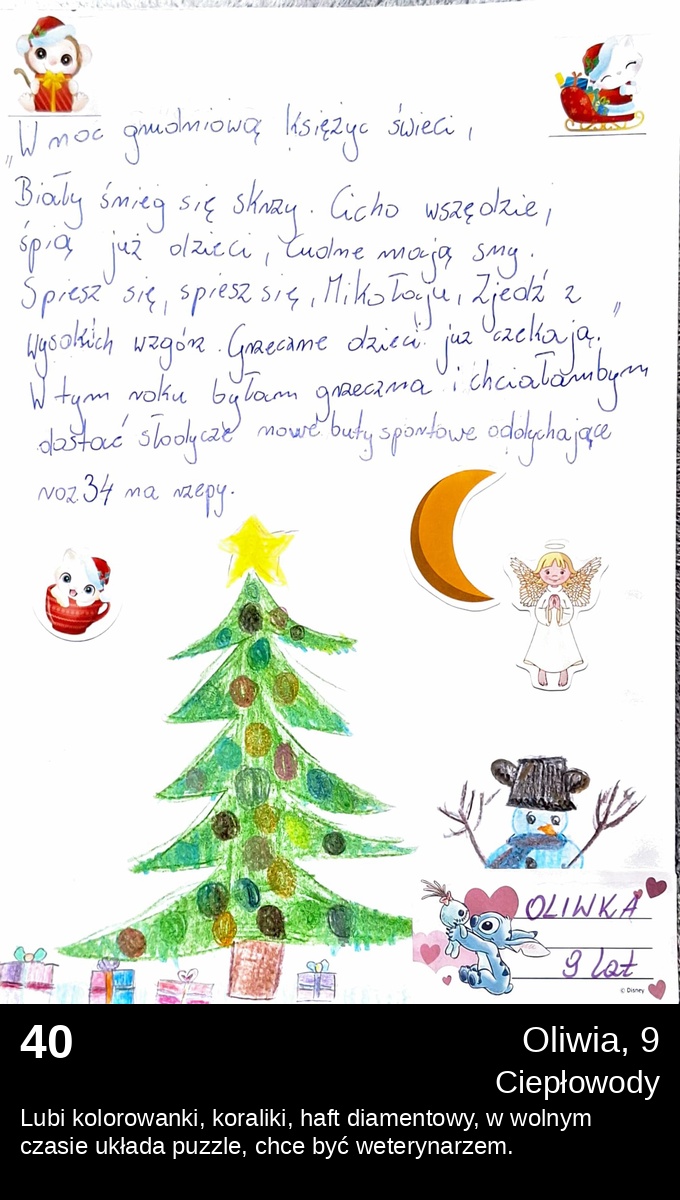 „W noc grudniową księżyc świeci,
Biały śnieg się skrzy. Cicho wszędzie,
śpią już dzieci, cudne mają sny.
Spiesz się, spiesz się, Mikołaju, Zjedź z
wysokich wzgórz. Grzeczne dzieci już czekają."
W tym roku byłam grzeczna i chciałambym
dostać słodycze nowe buty sportowe oddychające
roz. 34 na rzepy.
OLIWKA
9 lat
© Disney
40
Oliwia, 9
Ciepłowody
Lubi kolorowanki, koraliki, haft diamentowy, w wolnym
czasie układa puzzle, chce być weterynarzem.